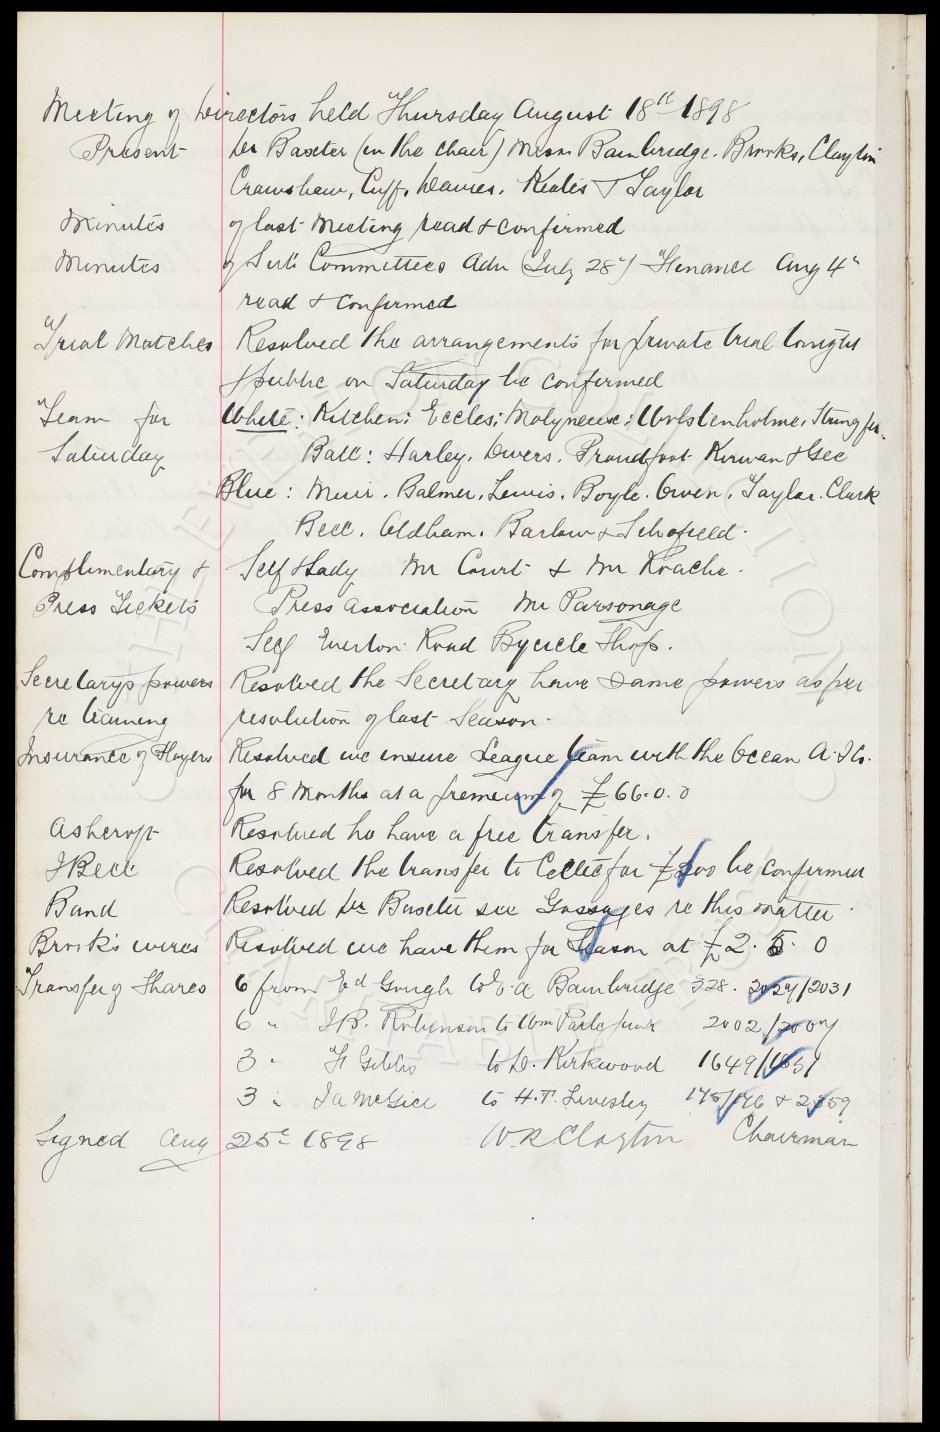 Meeting of Directors held Thursday August 18th 1898
Present Dr Baxter (in the chair) Messrs Bainbridge. Brooks, Clayton
Crawshaw, Cuff, Davies, Keates & Taylor
Minutes of last Meeting read & confirmed
Minutes of Sub Committees Adv (July 28") Finance Aug 4"
read & confirmed
Trial Matches Resolved the arrangements for private trial tonight
& public on Saturday be confirmed
Team for White: Kitchen: Eccles; Molyneux: Wolstenholme, Stringfer.
Saturday Ball: Harley, Divers, Proudfoot Kirwan & Gee
Blue: Muir. Balmer, Lewis. Boyle. Owen, Taylor. Clark
Bell. Oldham. Barlow & Schofield.
Complimentary & Self & Lady Mr Court & Mr Roache.
Press Tickets Press Association Mr Parsonage
Self Everton Road Bycicle Shop.
Secretarys powers Resolved the Secretary have same powers as per
re training resolution of last Season.
Insurance of Players Resolved we insure League team with the Ocean A. & Co.
for 8 Months at a premium of £66.0.0
Ashcroft Resolved he have a free transfer.
J Bell Resolved the transfer to Celtic for £ be confirmed
Band Resolved Dr Baxter see Gossages re this matter.
Brook's wires Resolved we have them for Season at £2. 5. 0
Transfer of Shares 6 from Ed Gough to E. A Bainbridge 328. 2027/2031
6 " J B. Robinson to Wm Parle junr 2002/2007
3 " F Gibbs to D. Kirkwood 1649/1651
3 " Ja McGill to H. T. Livesley 175/176 & 2359
Signed Aug 25th 1898 W. R Clayton Chairman